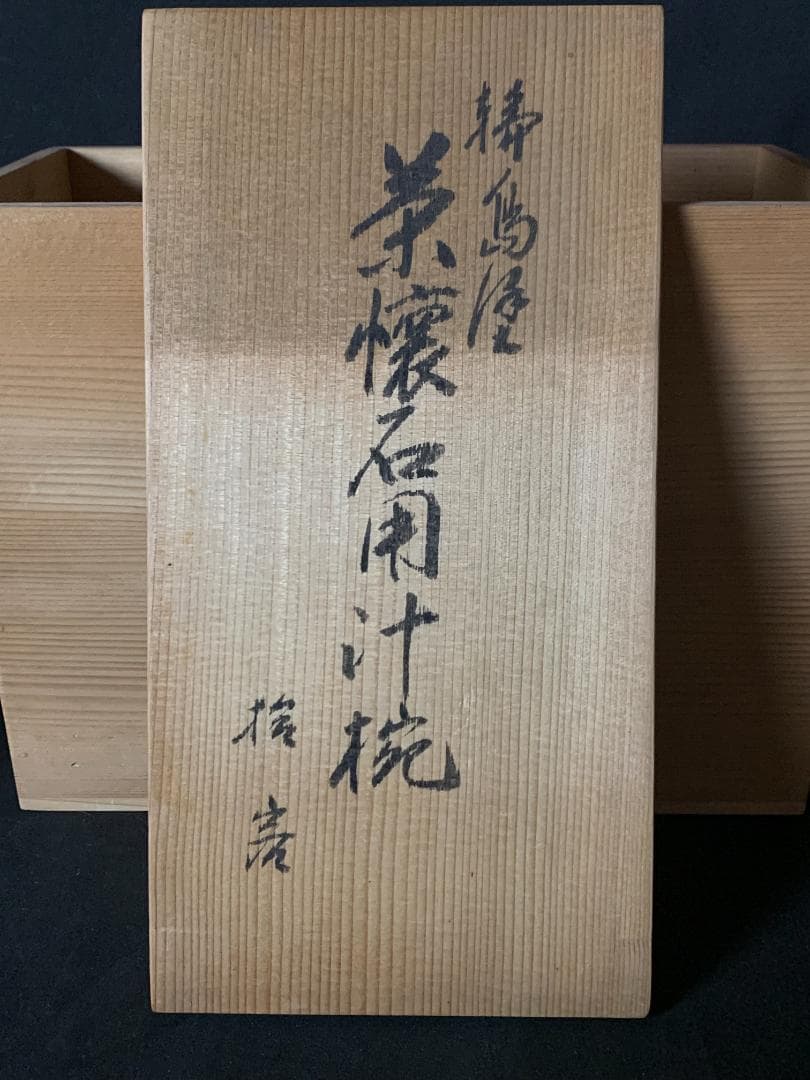 輪島塗
茶懐石用汁椀
拾客